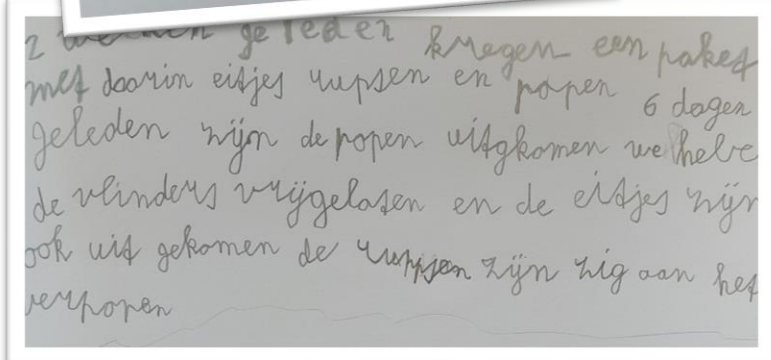 2 weken geleden kregen een paket
met daarin eitjes rupsen en popen 6 dagen
geleden zijn de popen uitgkomen we hebe
de vlinders vrijgelaten en de eitjes zijn
ook uit gekomen de rupsen zijn zig aan het
verpopen